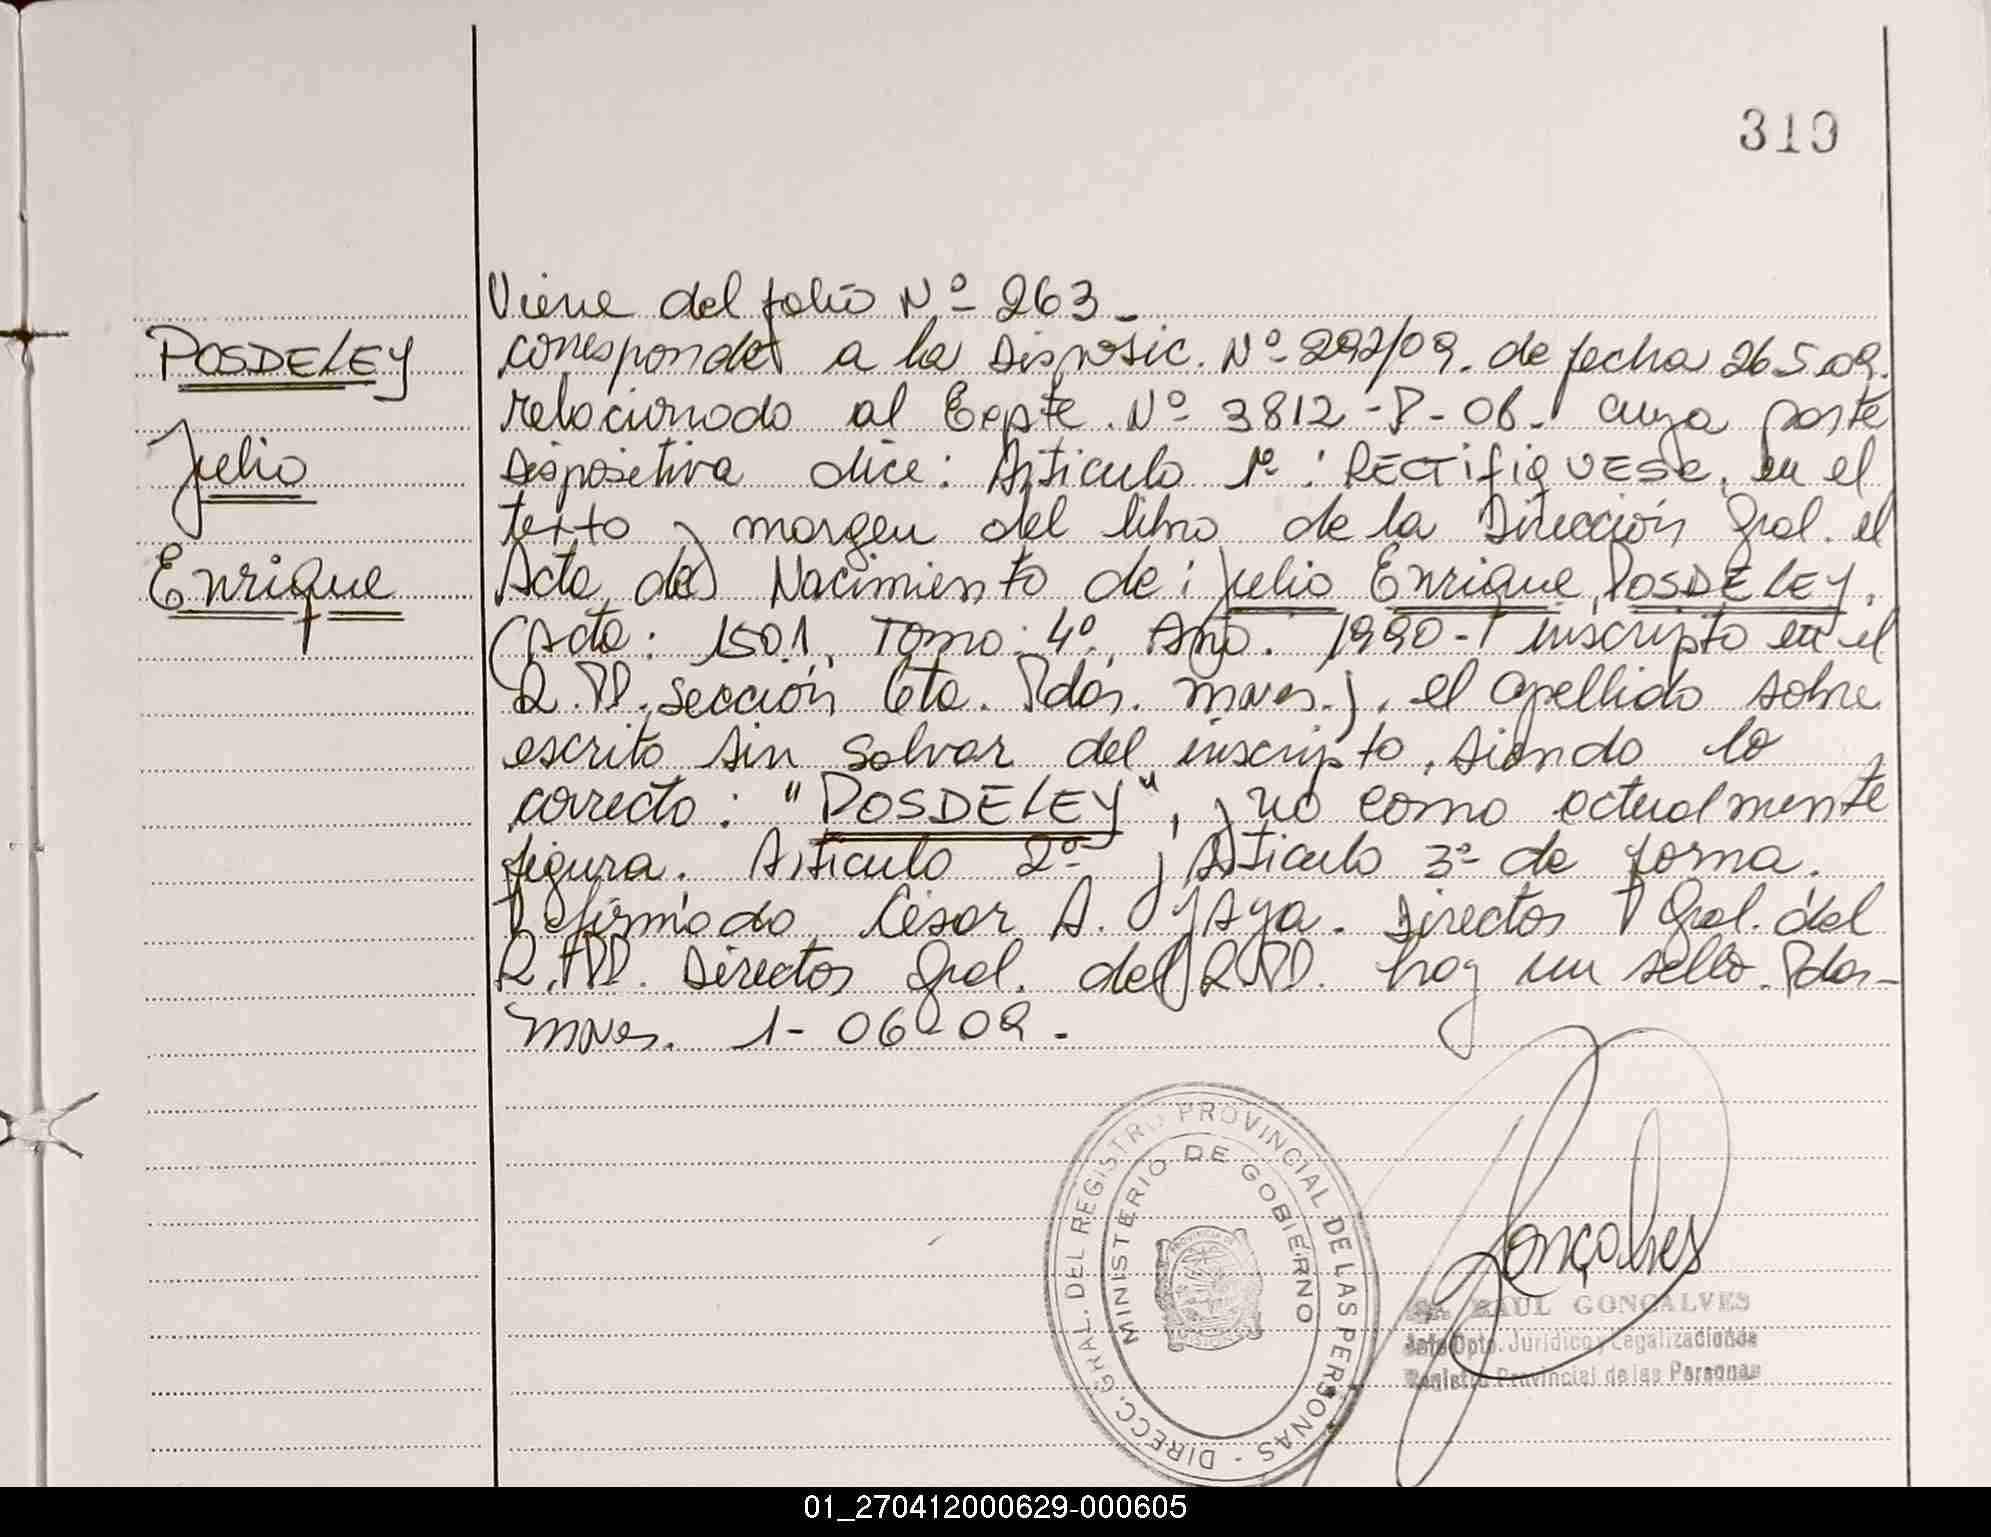 313
Viene del folio Nº 263.
POSDELEY
corresponde a la Disposic. Nº 292/09. de fecha 26.5.09.
relacionado al Expte. Nº 3812-P-06. cuya parte
Julio
Dispositiva dice: Articulo 1º: RECTifiQUESE, en el
texto y margen del libro de la Dirección Gral. el
Enrique
Acta de Nacimiento de: Julio Enrique POSDELEY.
(Acta: 1501, Tomo: 4º, Año. 1990- inscripto en el
R.PP. sección 6ta. Pdas. mnes.). el apellido sobre
escrito sin salvar del inscripto, siendo lo
correcto: "POSDELEY", y no como actualmente
figura. Articulo 2º y Articulo 3º de forma.
firmado César A. Director Gral. del
R.PP. Director Gral. del R.PP. hay un sello. Pdas-
mnes. 1-06-09.
DIRECC. GRAL. DEL REGISTRO PROVINCIAL DE LAS PERSONAS -
MINISTERIO DE GOBIERNO
PROVINCIA DE
MISIONES
Gonçalves
RAUL GONCALVES
Jefe Dpto. Jurídico y Legalizaciones
Registro Provincial de las Personas
01_270412000629-000605